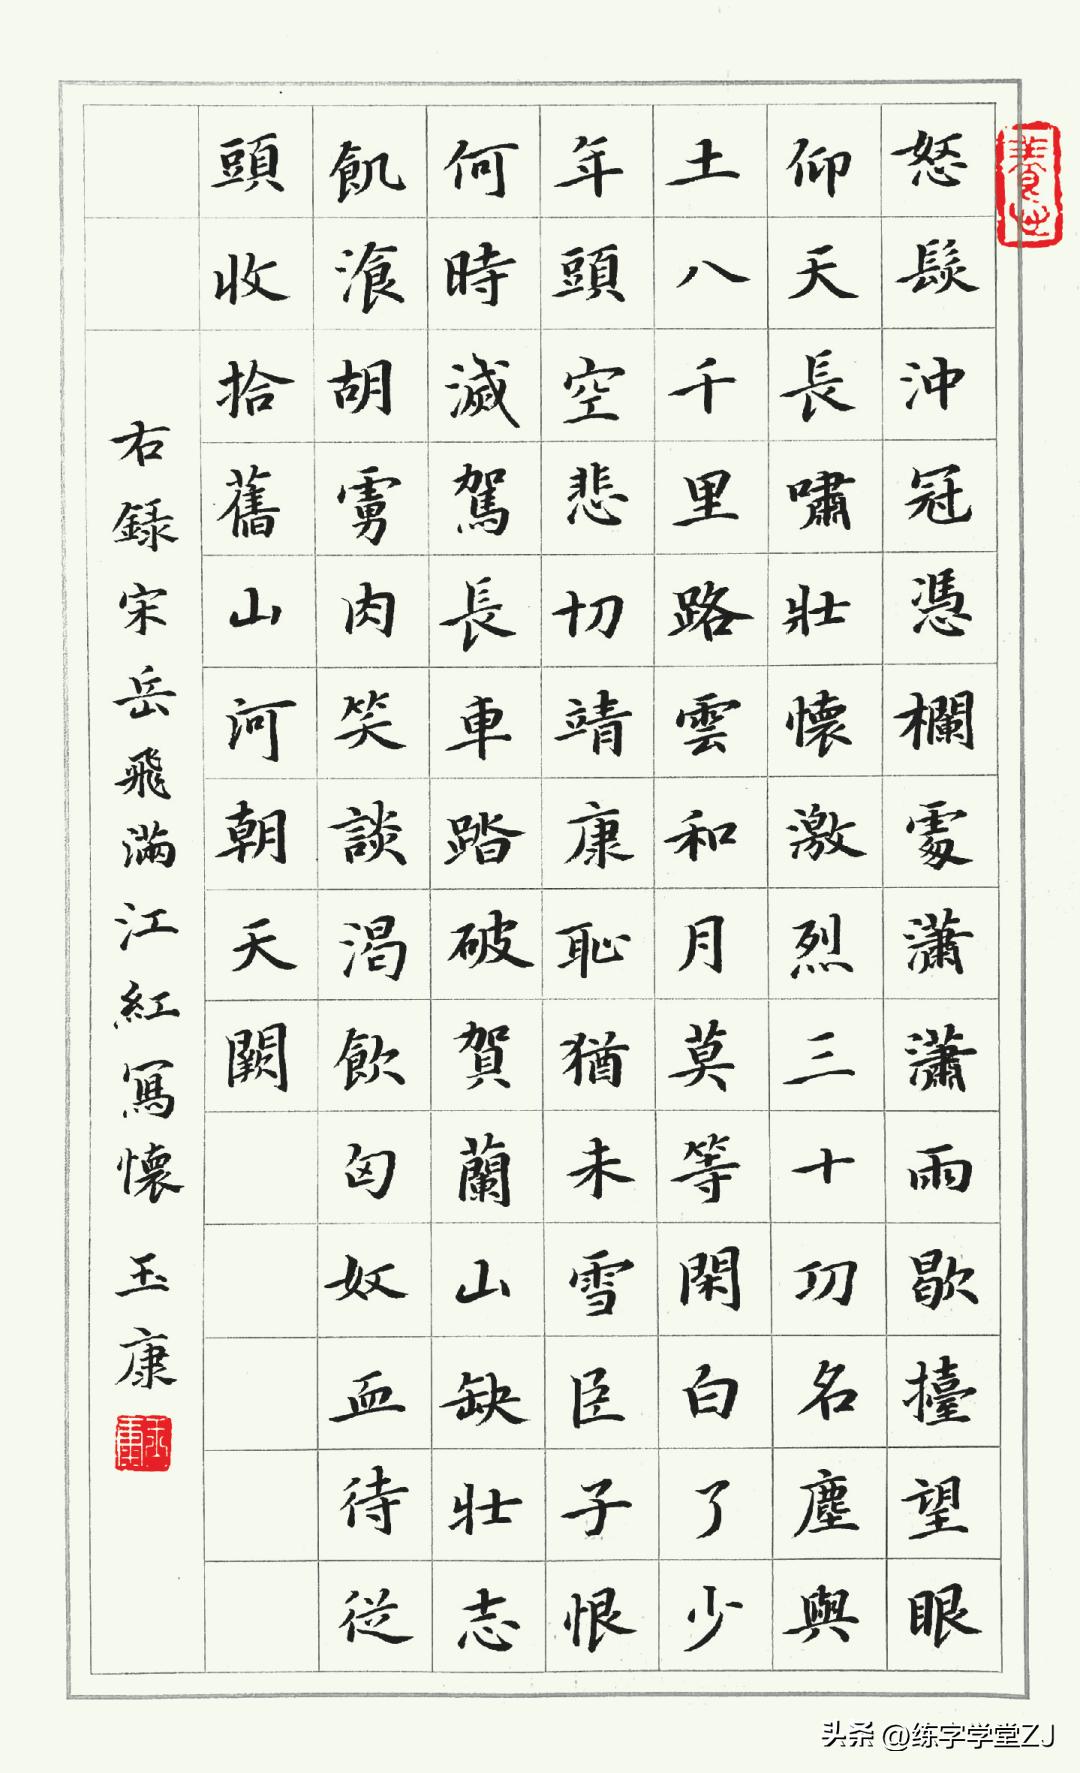 怒髮沖冠憑欄處瀟瀟雨歇擡望眼
仰天長嘯壯懷激烈三十功名塵與
土八千里路雲和月莫等閑白了少
年頭空悲切靖康恥猶未雪臣子恨
何時滅駕長車踏破賀蘭山缺壯志
飢湌胡虜肉笑談渴飲匈奴血待從
頭收拾舊山河朝天闕
右録宋岳飛滿江紅寫懷 玉康
玉康
头条 @练字学堂ZJ